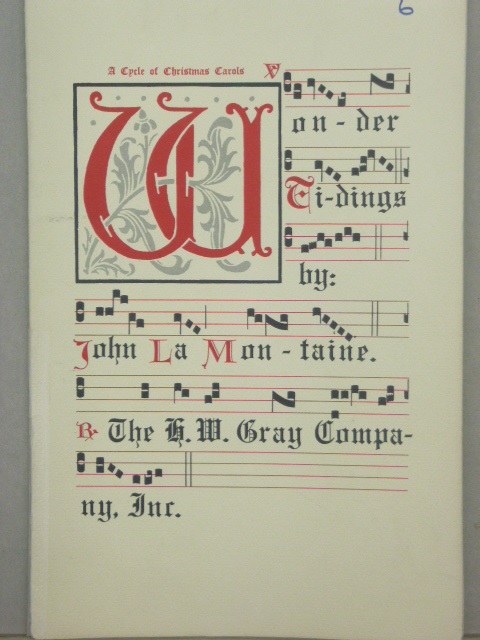 6
A Cycle of Christmas Carols ℣
Won-der
Ti-dings
by:
John La Mon-taine.
℟ The H. W. Gray Compa-
ny, Inc.